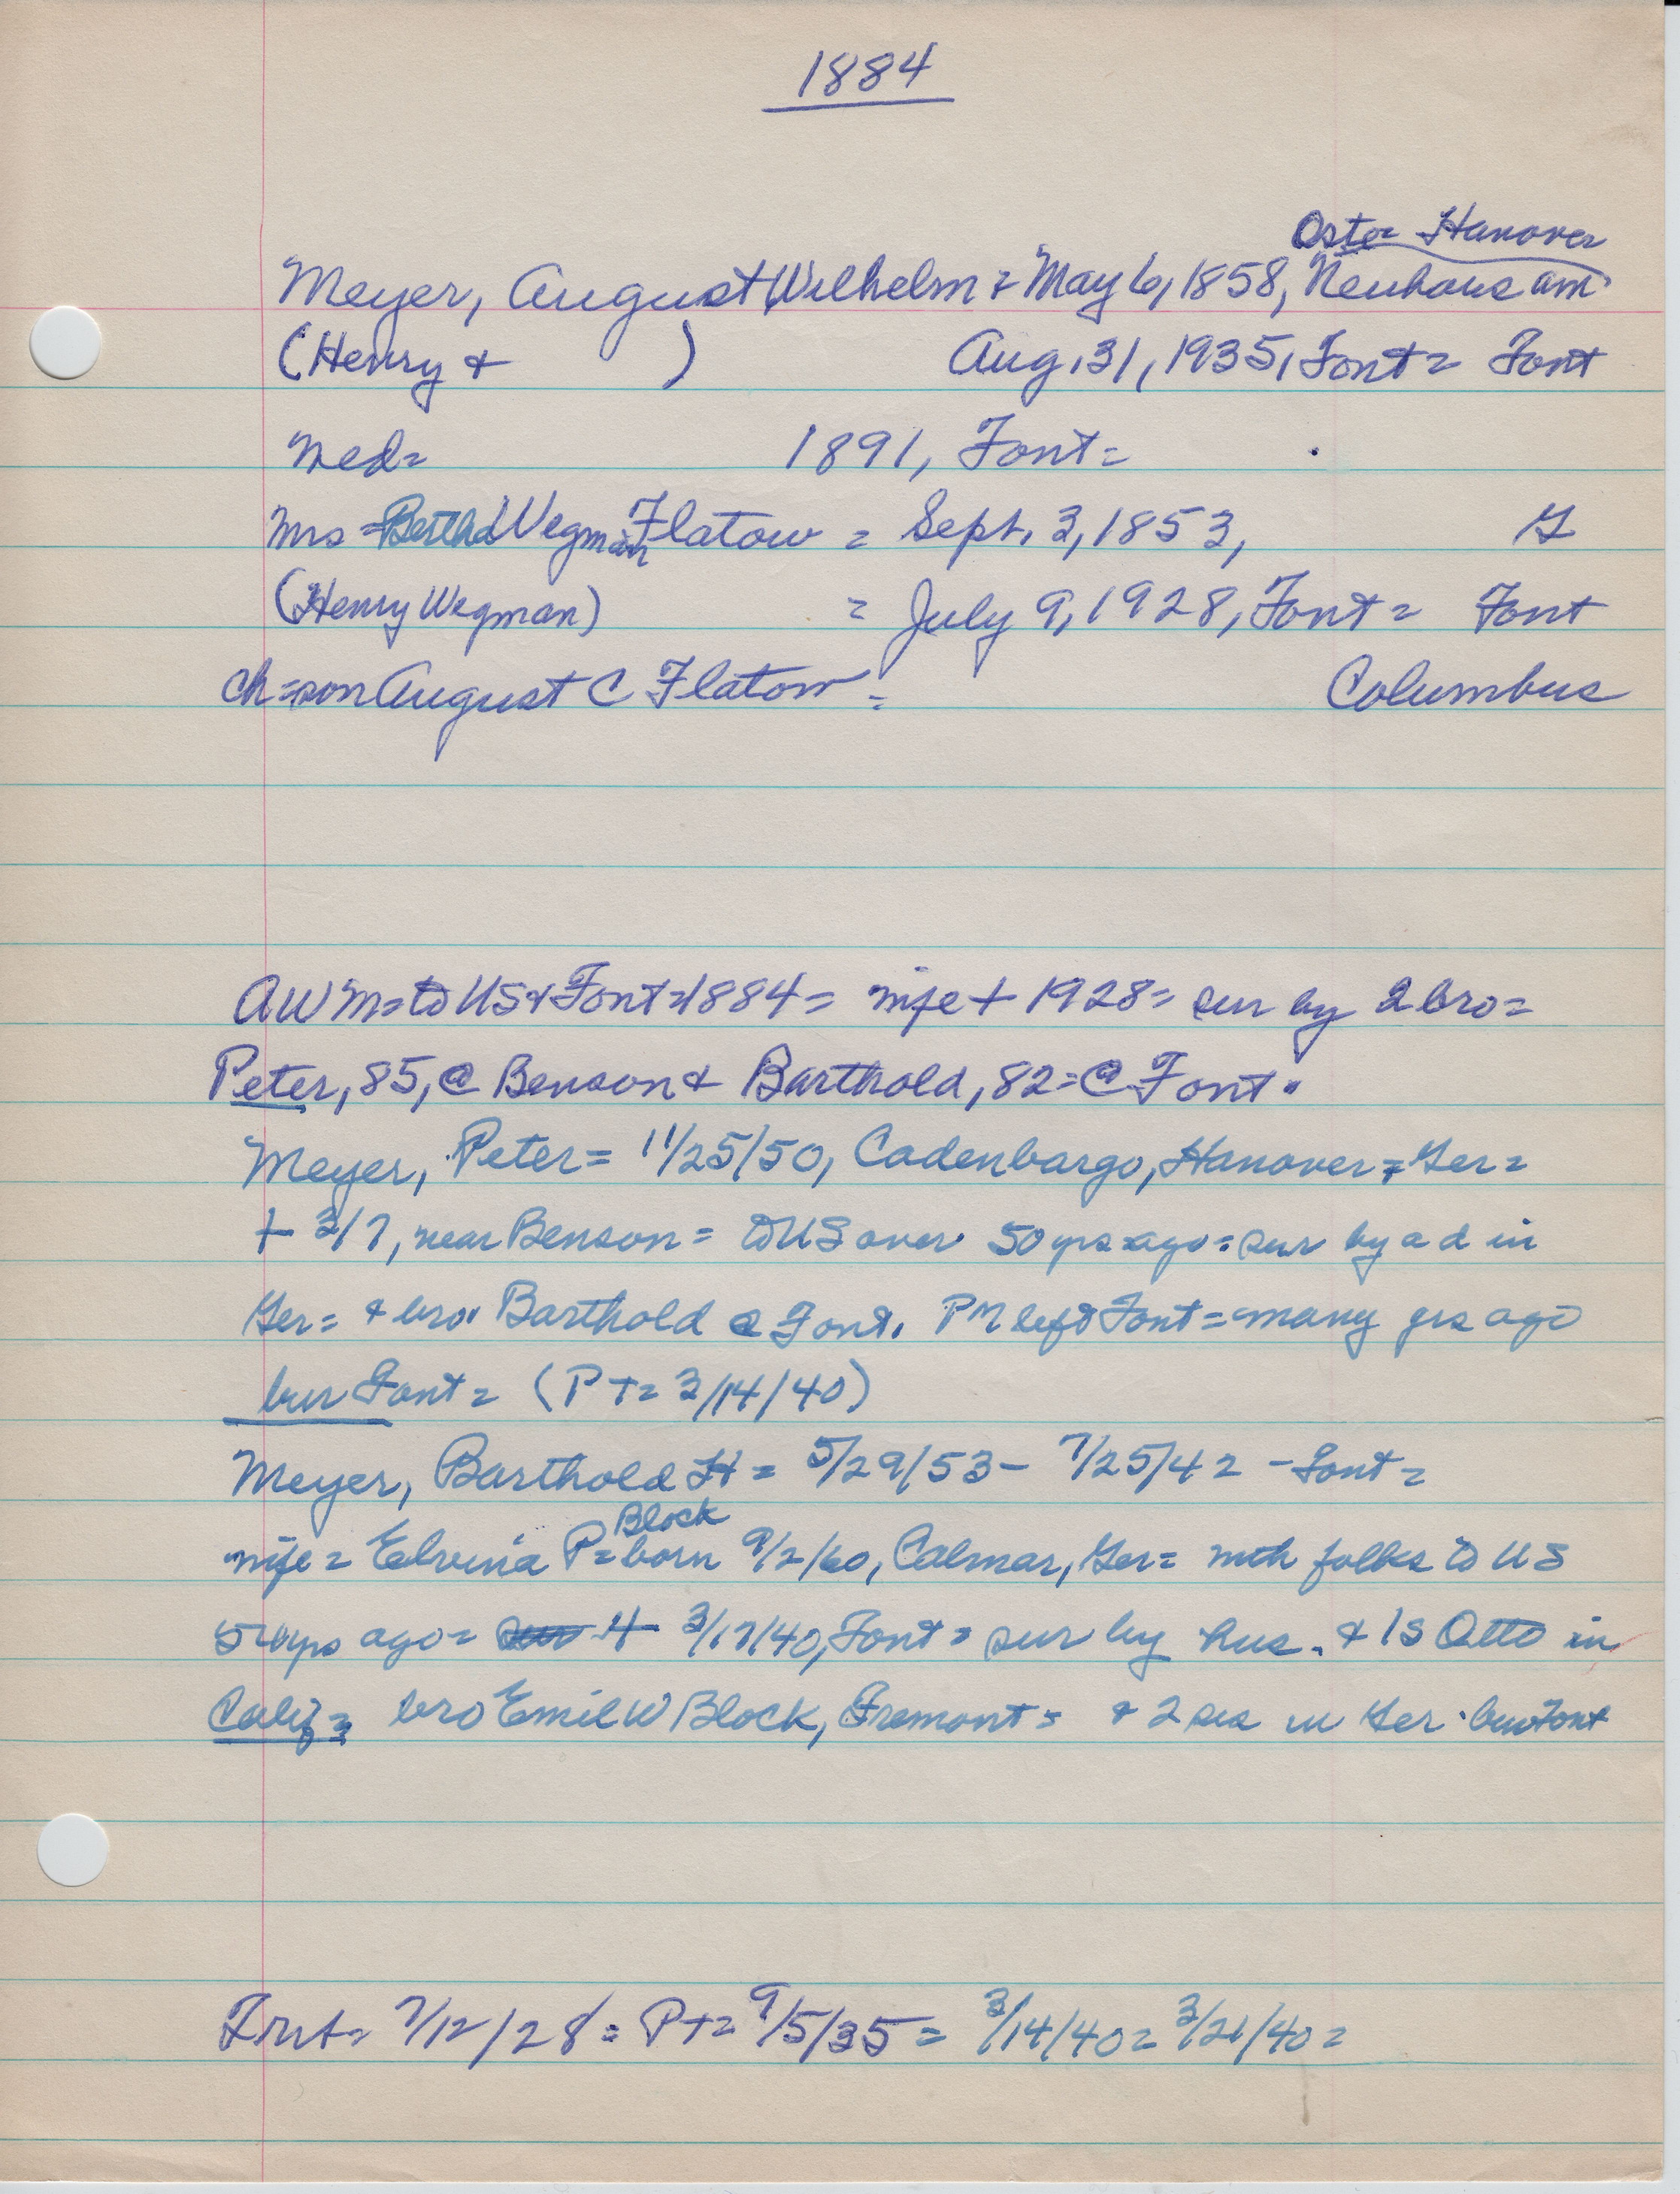 1884
Oste = Hanover
Meyer, August Wilhelm = May 6, 1858, Neuhaus am
(Henry + ) Aug. 31, 1935, Font = Font
Wed = 1891, Font =
Mrs = Bertha Wegman Flatow = Sept. 3, 1853, G
(Henry Wegman) = July 9, 1928, Font = Font
ch = son August C Flatow = Columbus
AWM = to US & Font = 1884 = wife + 1928 = sur by 2 bro =
Peter, 85, @ Benson & Barthold, 82 = @ Font.
Meyer, Peter = 11/25/50, Cadenbargo, Hanover = Ger =
+ 3/7, near Benson = to US over 50 yrs ago = sur by a d in
Ger = & bro. Barthold @ Font. PM left Font = many yrs ago
bur Font = (P T = 3/14/40)
Meyer, Barthold H = 5/29/53 - 7/25/42 - Font =
Block
wife = Elvina P = born 9/2/60, Calmar, Ger = with folks to US
yrs ago = + 3/17/40, Font = sur by hus. & 1 s Otto in
Calif = bro Emil W Block, Fremont = & 2 sis in Ger. bur Font
Frnt = 7/12/28 = P T = 9/5/35 = 3/14/40 = 3/21/40 =